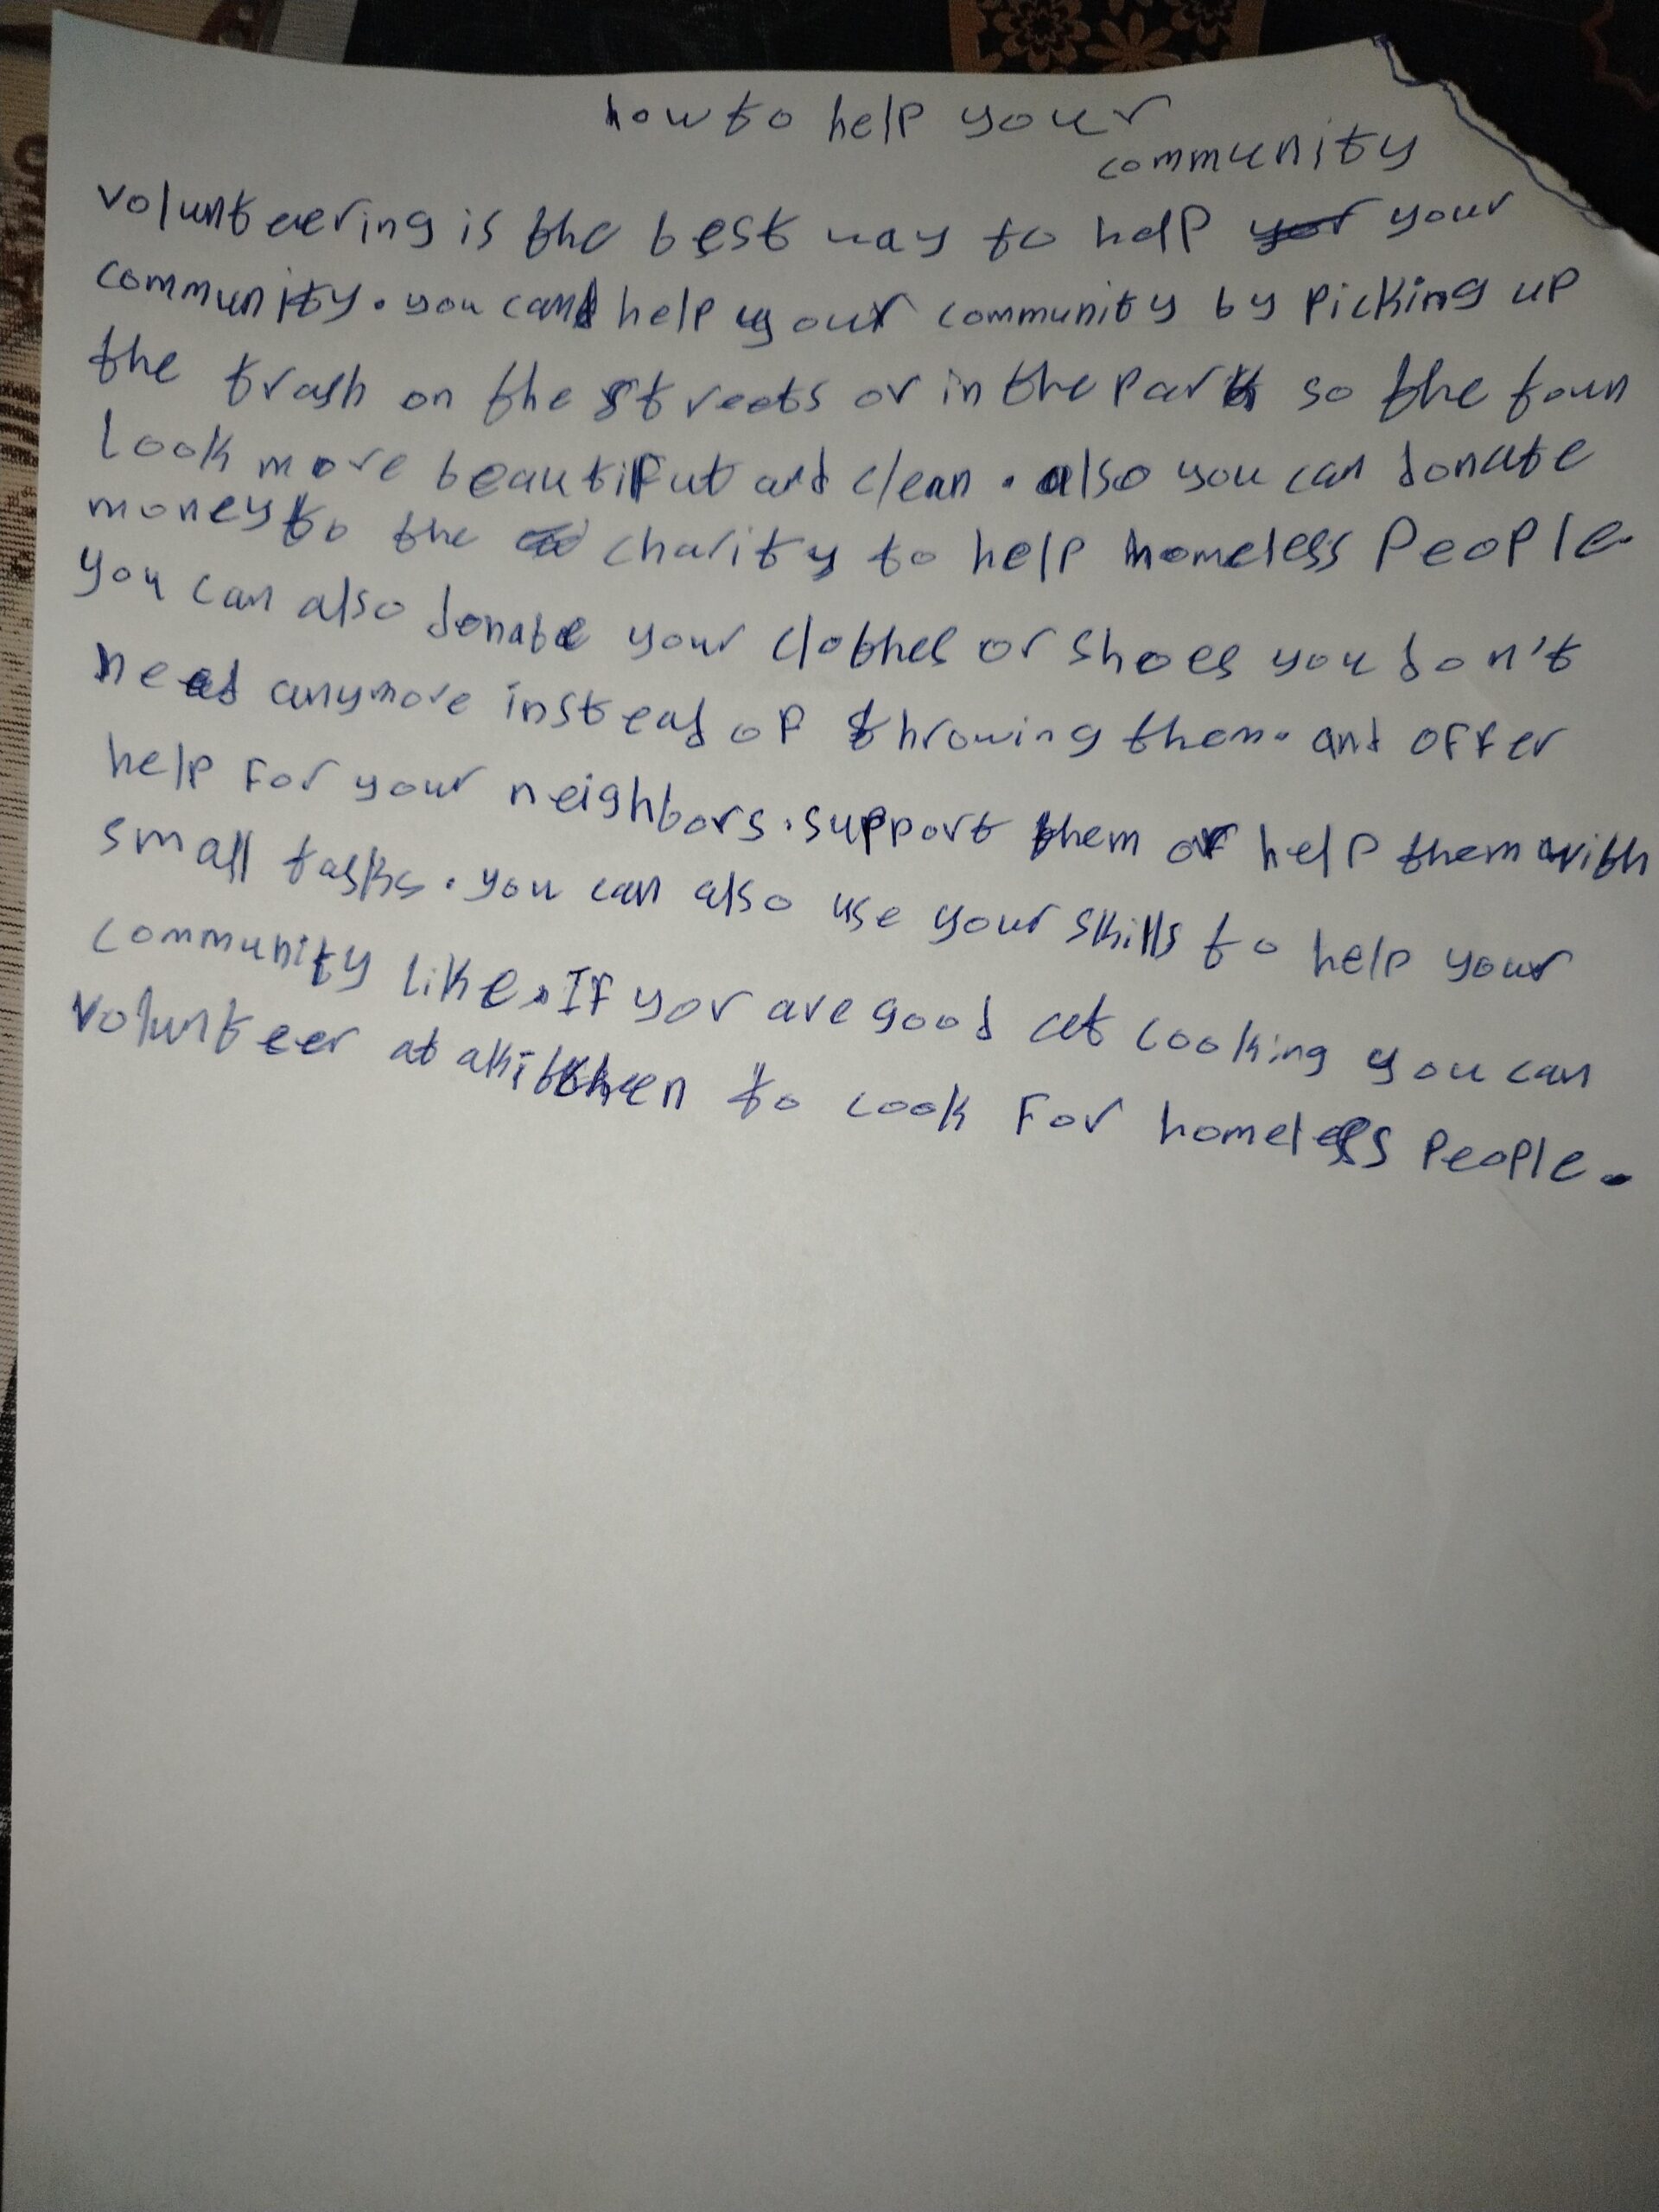 how to help your
community
volunteering is the best way to help your
community. you can help your community by picking up
the trash on the streets or in the park so the town
look more beautiful and clean. also you can donate
money to the charity to help homeless people.
you can also donate your clothes or shoes you don't
need anymore instead of throwing them. and offer
help for your neighbors. support them or help them with
small tasks. you can also use your skills to help your
community like. If yor are good at cooking you can
volunteer at a kitchen to cook for homeless people.